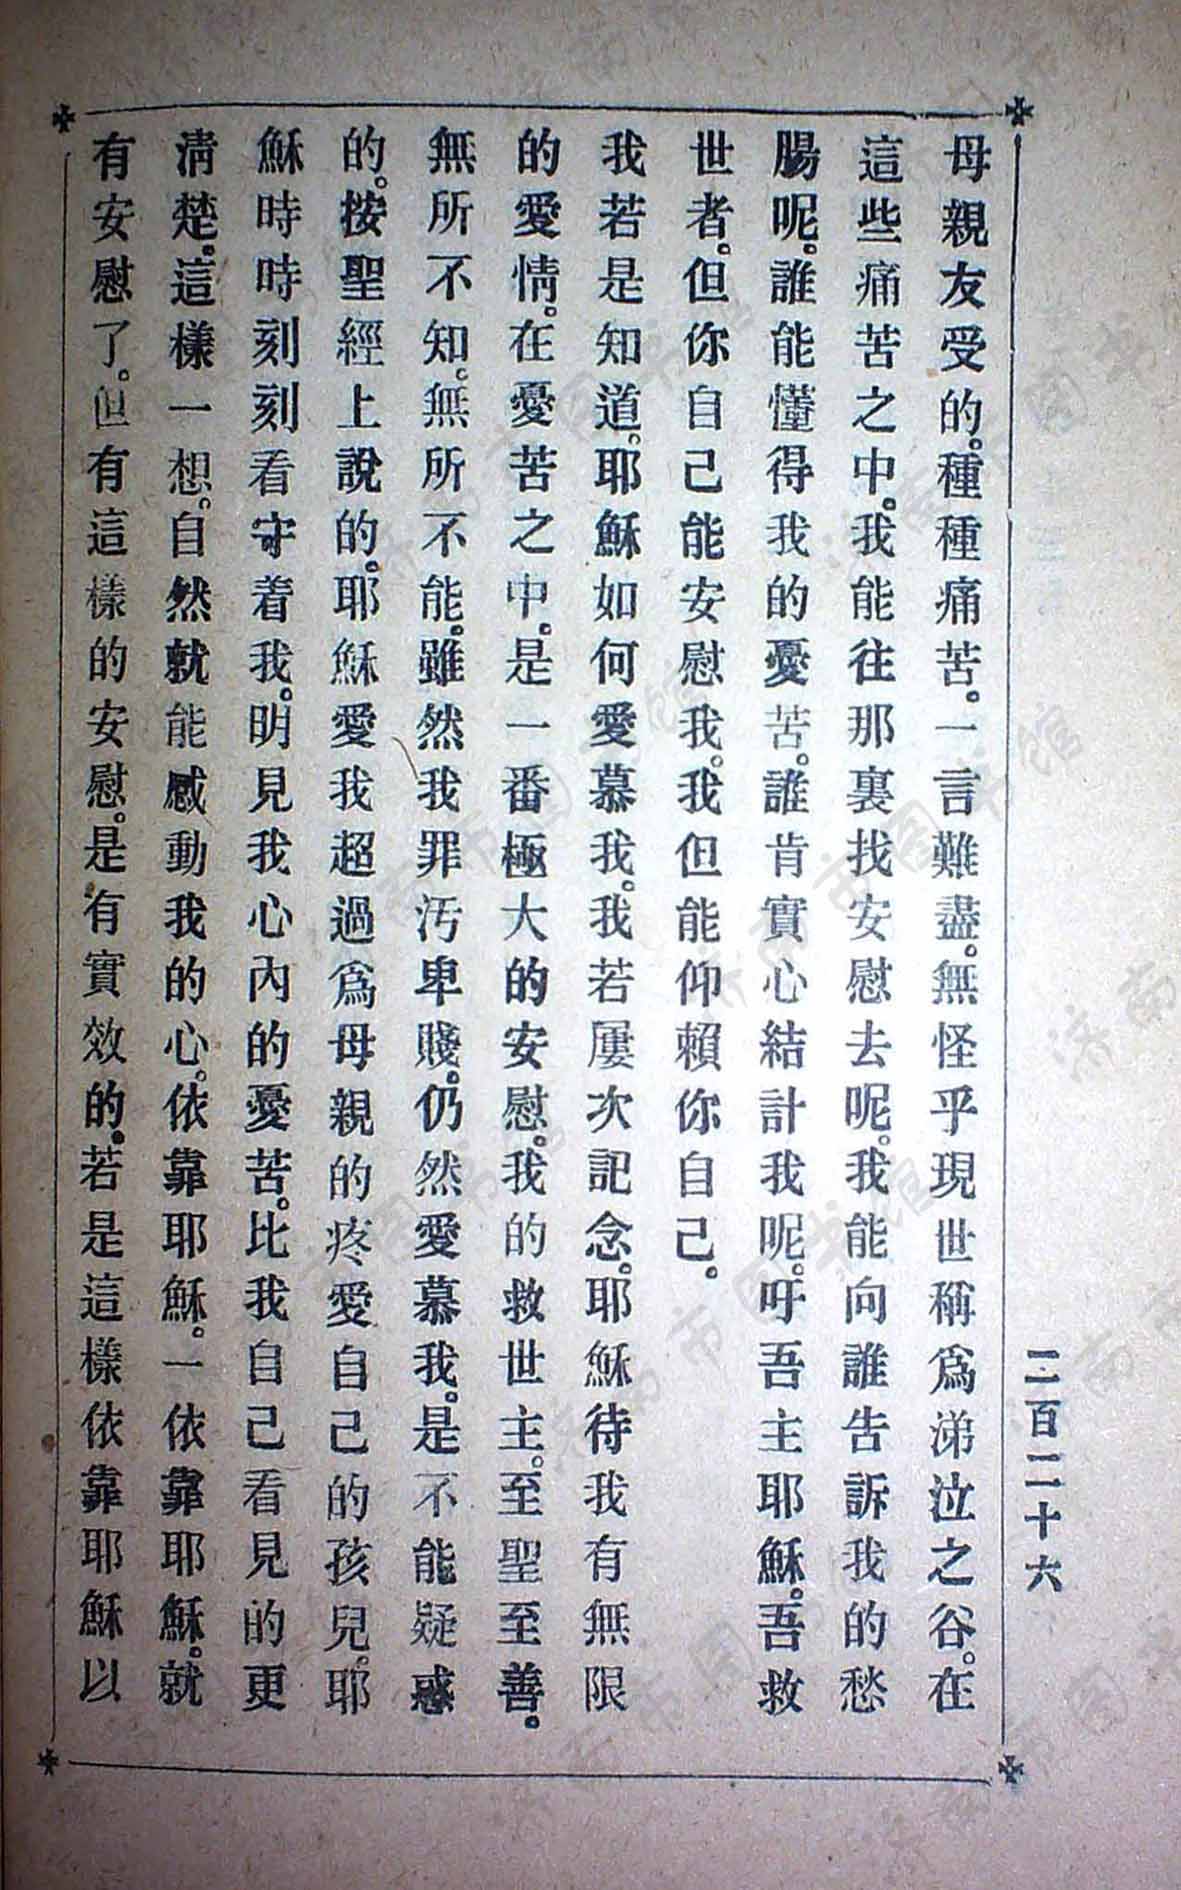 二百二十六
母親友受的。種種痛苦。一言難盡。無怪乎現世稱爲涕泣之谷。在
這些痛苦之中。我能往那裏找安慰去呢。我能向誰告訴我的愁
腸呢。誰能懂得我的憂苦。誰肯實心結計我呢。吁吾主耶穌。吾救
世者。但你自己能安慰我。我但能仰賴你自己。
我若是知道。耶穌如何愛慕我。我若屢次記念。耶穌待我有無限
的愛情。在憂苦之中。是一番極大的安慰。我的救世主。至聖至善。
無所不知。無所不能。雖然我罪汚卑賤。仍然愛慕我。是不能疑惑
的。按聖經上說的。耶穌愛我超過爲母親的疼愛自己的孩兒。耶
穌時時刻刻看守着我。明見我心內的憂苦。比我自己看見的更
淸楚。這樣一想。自然就能感動我的心。依靠耶穌。一依靠耶穌。就
有安慰了。但有這樣的安慰。是有實效的。若是這樣依靠耶穌以
济南市图书馆